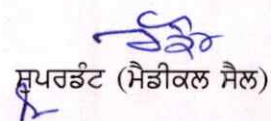 ਸੁਪਰਡੰਟ (ਮੈਡੀਕਲ ਸੈਲ)